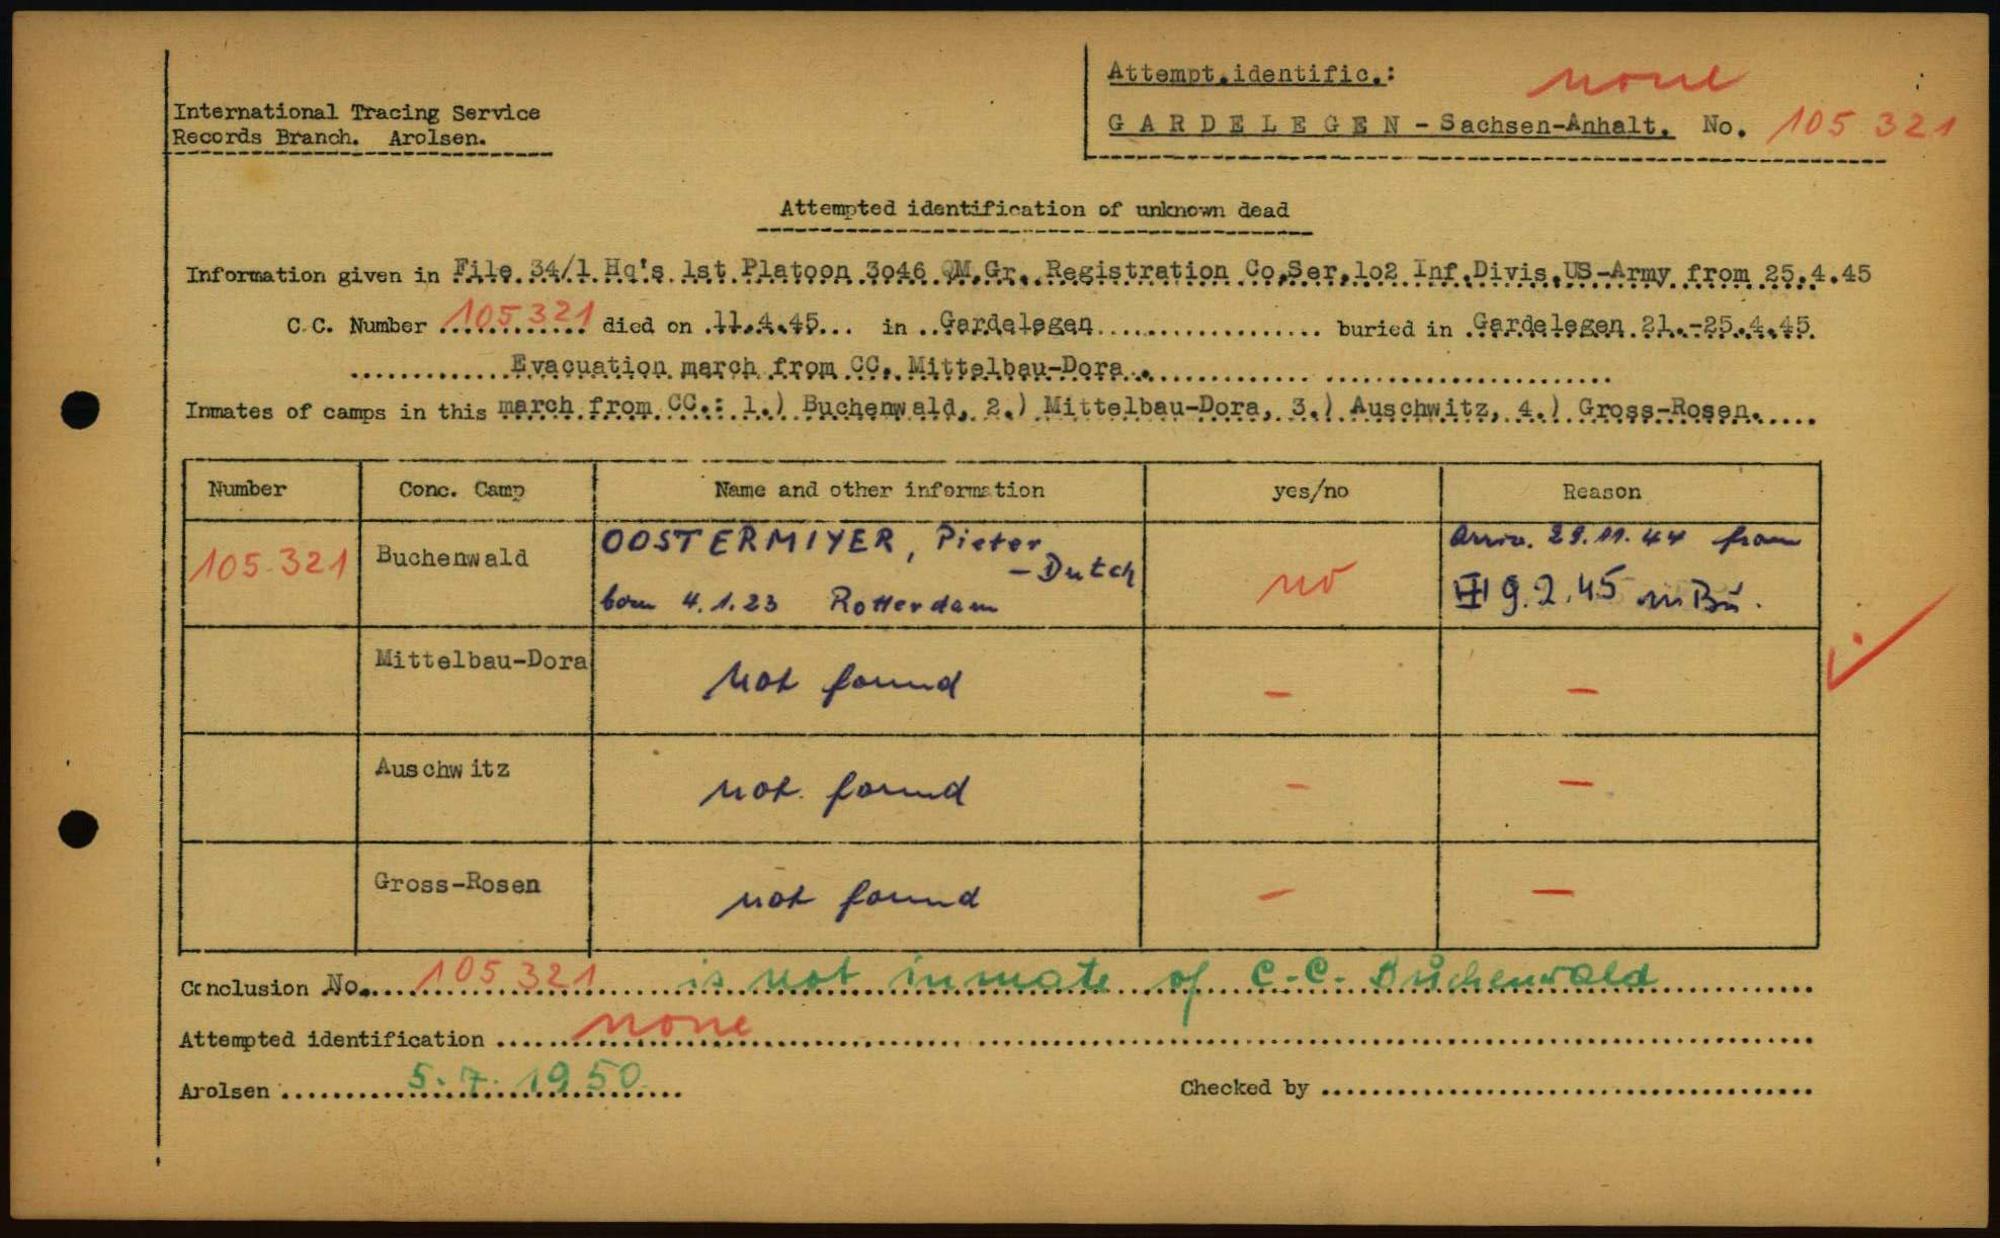 Attempt.identific.: none
International Tracing Service
Records Branch. Arolsen.
GARDELEGEN - Sachsen-Anhalt. No. 105 321
Attempted identification of unknown dead
Information given in File 34/1 Hq's 1st Platoon 3o46 QM.Gr. Registration Co,Ser,1o2 Inf.Divis,US-Army from 25.4.45
C.C. Number 105321 died on 11.4.45 in Gardelegen buried in Gardelegen 21.-25.4.45.
Evacuation march from CC. Mittelbau-Dora.
Inmates of camps in this march from CC.: 1.) Buchenwald, 2.) Mittelbau-Dora, 3.) Auschwitz, 4.) Gross-Rosen.
Number Conc. Camp Name and other information yes/no Reason
105.321 Buchenwald OOSTERMIYER, Pieter no Arriv. 29.11.44 from
-Dutch
born 4.1.23 Rotterdam 9.2.45 in Bu.
Mittelbau-Dora not found - -
Auschwitz not found - -
Gross-Rosen not found - -
Conclusion No. 105 321 is not inmate of C.-C. Buchenwald
Attempted identification none
Arolsen 5.7.1950 Checked by